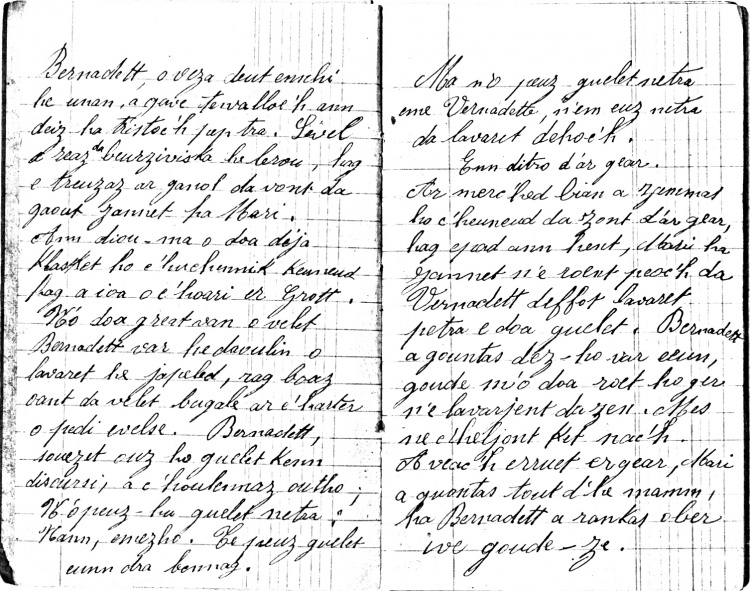 Bernadett, o veza deut enn hi
he unan, a gave tewalloc'h ann
deiz ha tristoc'h pep tra. Sevel
a reaz da vourziviska he lerou, hag
e treuzaz ar ganol da vont da
gaout Jannet ha Mari.
Ann diou-ma o doa deja
klasket ho c'huchennik keuneud
hag a ioa o c'hoari er Grott.
N'o doa great van o velet
Bernadett var he daoulin o
lavaret he japeled, rag boaz
oant da velet bugale ar c'harter
o pedi evelse. Bernadett,
souezet ouz ho guelet kenn
discursi, a c'houlennaz outho;
N'o peuz-hu guelet netra?
Nann, emezho. Te peuz guelet
eunn dra bennag.
Ma n'o peuz guelet netra
eme Vernadette, n'em euz netra
da lavaret dehoc'h.
Enn ditro d'ar gear.
Ar merc'hed bian a zammas
ho c'heuneud da zont d'ar gear,
hag epad ann hent, Mari ha
Jannet n'e roent peoc'h da
Vernadett deffot lavaret
petra e doa guelet. Bernadett
a gountas dez-ho var eeun,
goude m'o doa roet ho ger
n'e lavarjent da zen. Mes
ne c'heljont ket nac'h.
A veac'h erruet er gear, Mari
a guontas tout d'he mamm,
ha Bernadett a rankas ober
ive goude-ze.